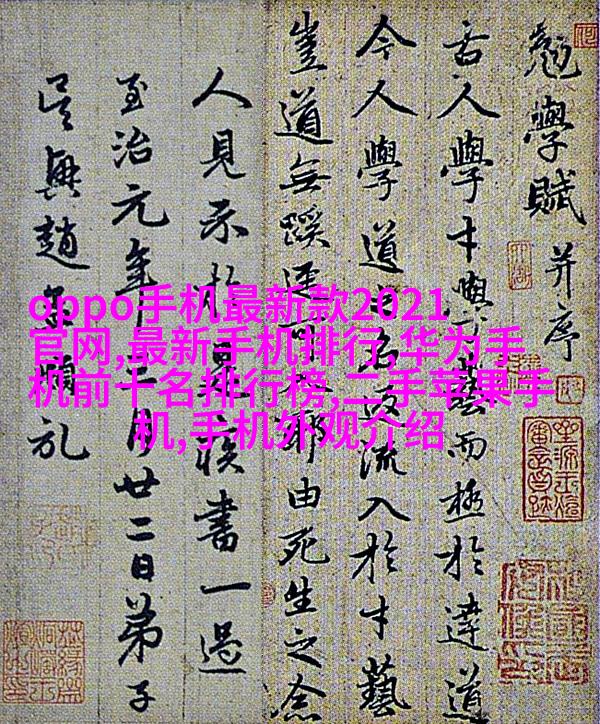 勉學賦 并序
古人學才與藝而極於達道
今人學道名流入於才藝
豈道無蹊耶由死生之念
人見示書一過
至治元年月廿二日弟子
吳興趙孟頫
oppo手机最新款2021
官网,最新手机排行,华为手
机前十名排行榜,二手苹果手
机,手机外观介绍